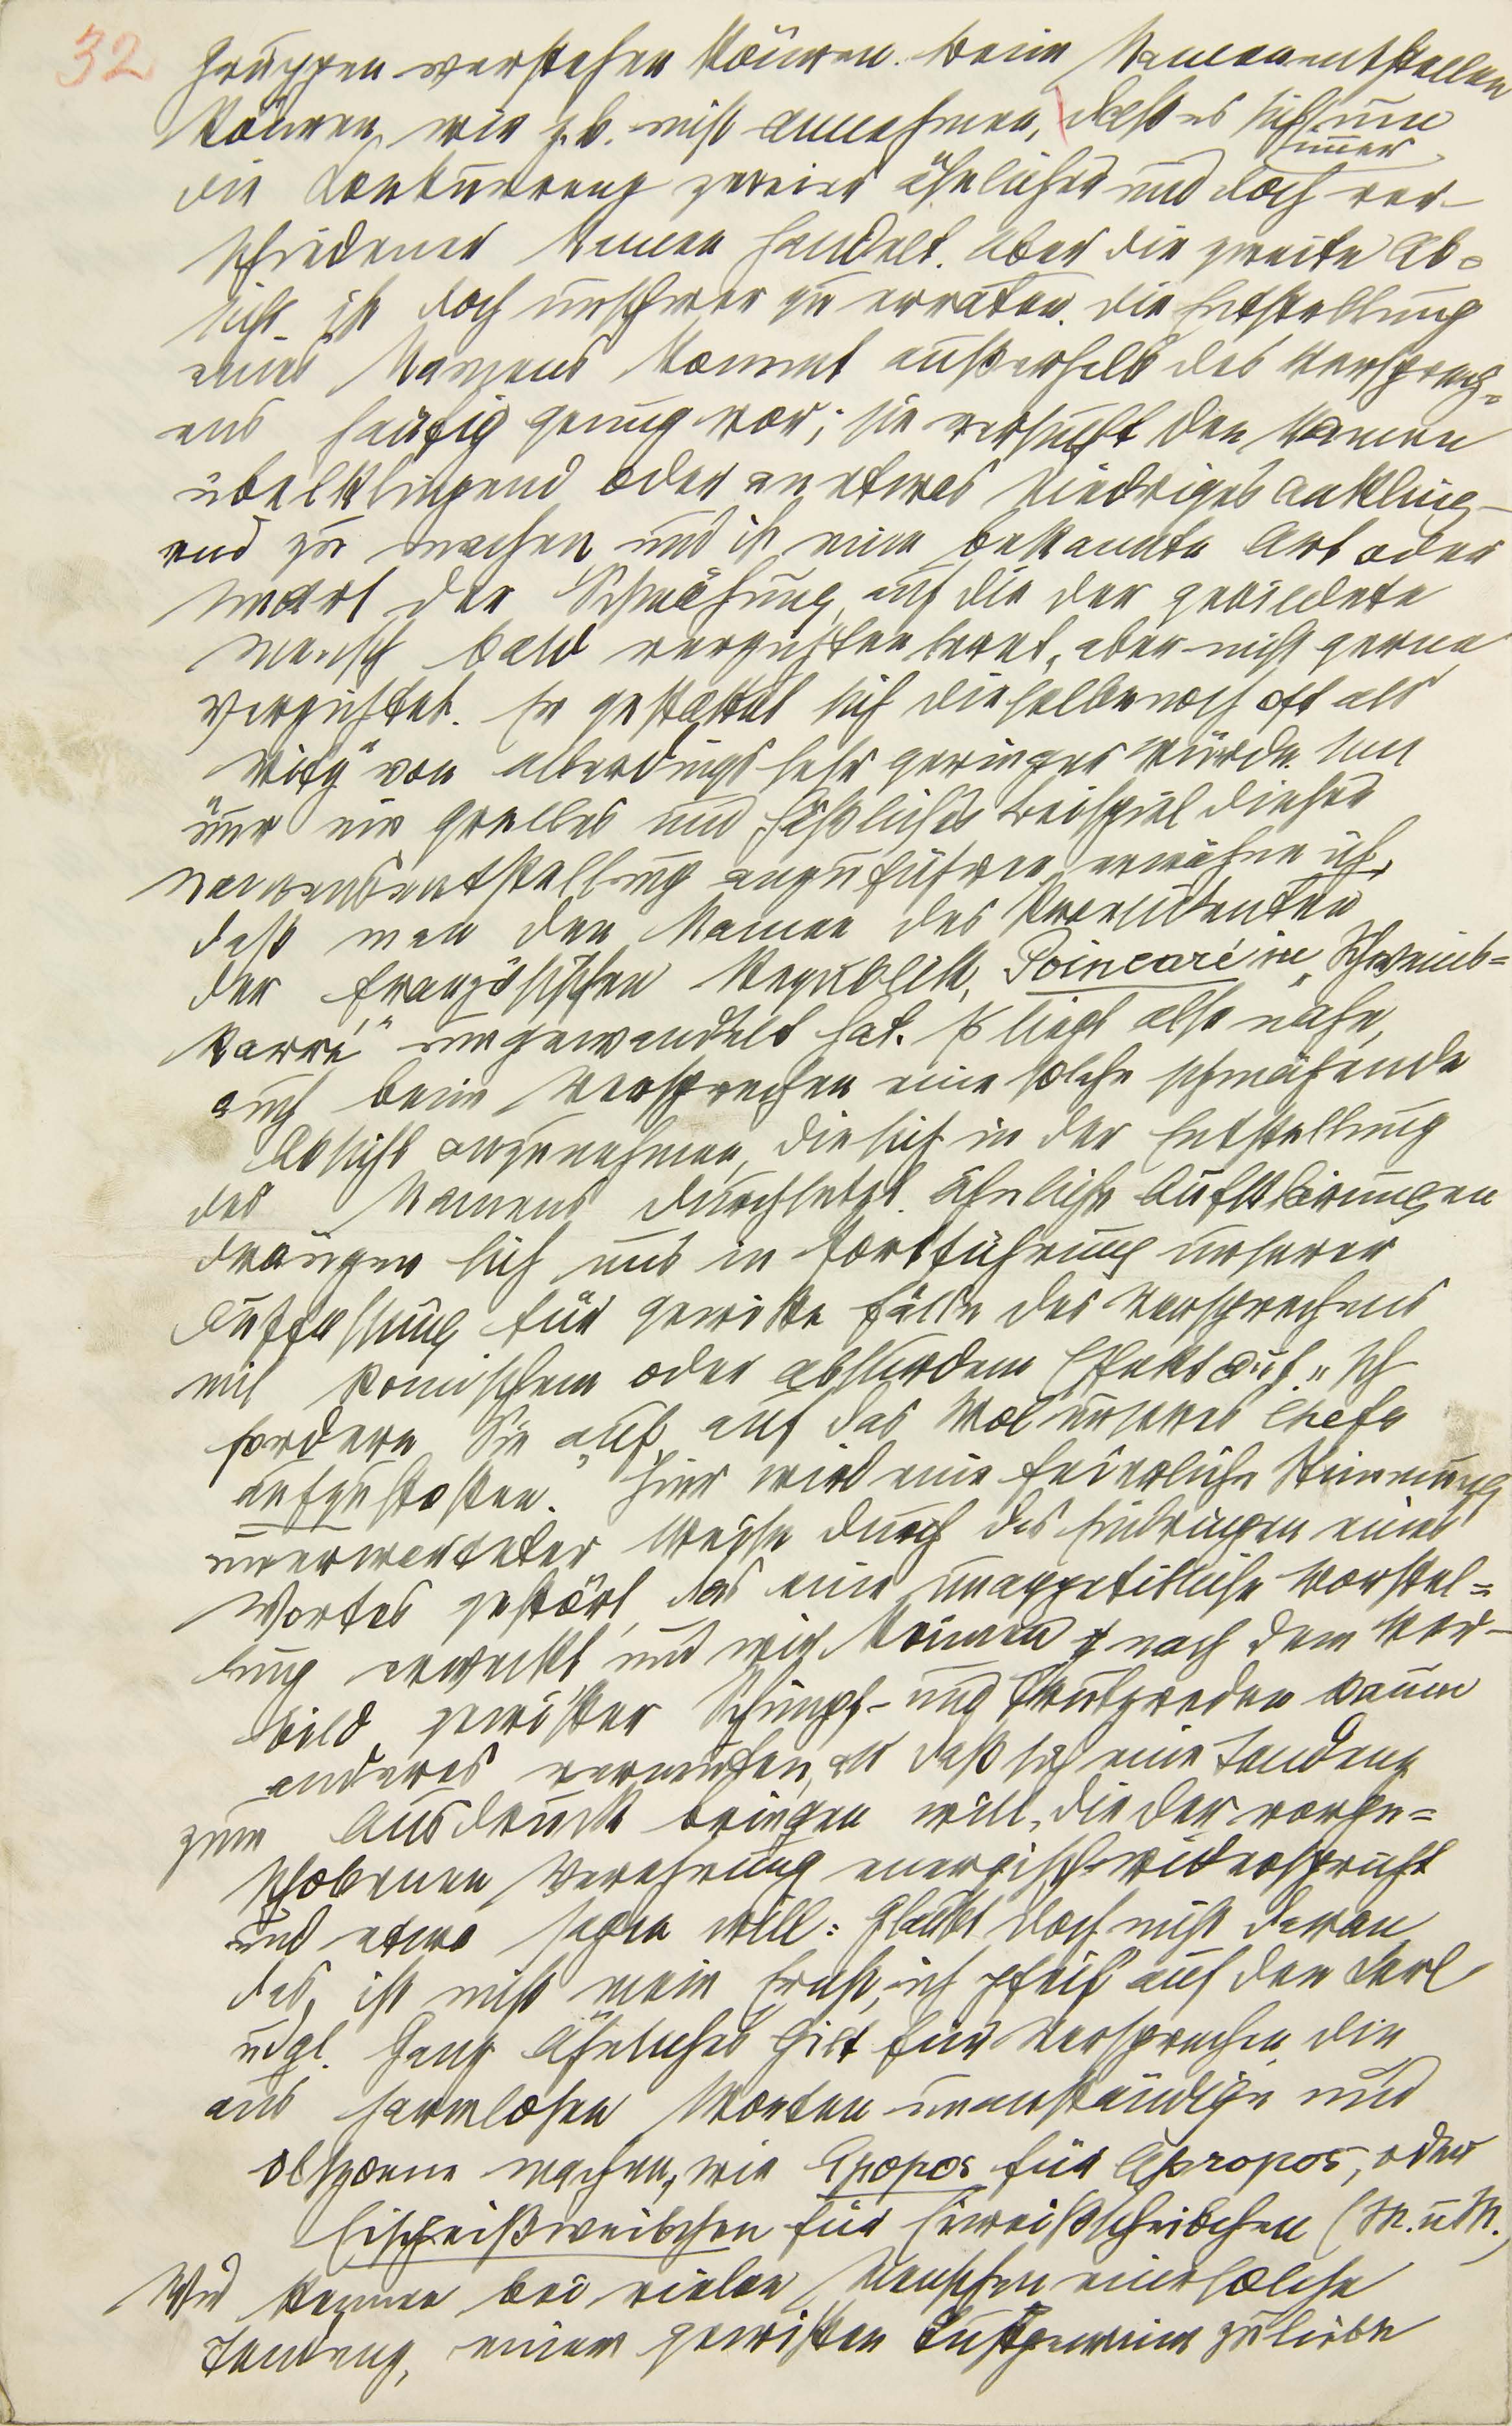 32
Gruppen verstehen können. Beim Namenentstellen
können wir z.b. nicht annehmen, daß es sich um
immer
die Konkurrenz zweier ähnlicher und doch ver-
schiedener Namen handelt. Aber die zweite Ab-
sicht ist doch unschwer zu erraten. Die Entstellung
eines Namens kommt außerhalb des Versprech-
ens häufig genug vor; sie versucht den Namen
übelklingend oder an etwas Niedriges ankling-
end zu machen und ist eine bekannte Art oder
Unart der Schmähung, auf die der gebildete
Mensch bald verzichten lernt, aber nicht gerne
verzichtet. Er gestattet sich dieselbe noch oft als
„Witz" von allerdings sehr geringer Würde. Um
nur ein grelles und häßliches Beispiel dieser
Namensentstellung anzuführen, erwähne ich,
daß man den Namen des Präsidenten
der französischen Republik, Poincaré in „Schweins-
karré" umgewandelt hat. Es liegt also nahe,
auch beim Versprechen eine solche schmähende
Absicht anzunehmen, die sich in der Entstellung
des Namens durchsetzt. Ähnliche Aufklärungen
drängen sich uns in Fortführung unserer
Auffassung für gewisse Fälle des Versprechens
mit komischem oder absurdem Effekt auf. „Ich
fordere Sie auf, auf das Wol unseres Chefs
aufzustoßen." Hier wird eine feierliche Stimmung
unerwarteter Weise durch das Eindringen eines
Wortes gestört, das eine unappetitliche Vorstel-
lung erweckt, und wir können nach dem Vor-
bild gewisser Schimpf- und Trutzreden kaum
anderes vermuten, als daß sich eine Tendenz
zum Ausdruck bringen will, die der vorge-
schobenen Verehrung energisch widerspricht
und etwa sagen will: Glaubt doch nicht daran,
das ist nicht mein Ernst, ich pfeif auf den Kerl
udgl. Ganz Ähnliches gilt für Versprechen, die
aus harmlosen Worten unanständige und
obszoene machen, wie Apopos für Apropos, oder
Eischeißweibchen für Eiweißscheibchen (M. u M.)
Wir kennen bei vielen Menschen eine solche
Tendenz, einem gewissen Lustgewinn zuliebe